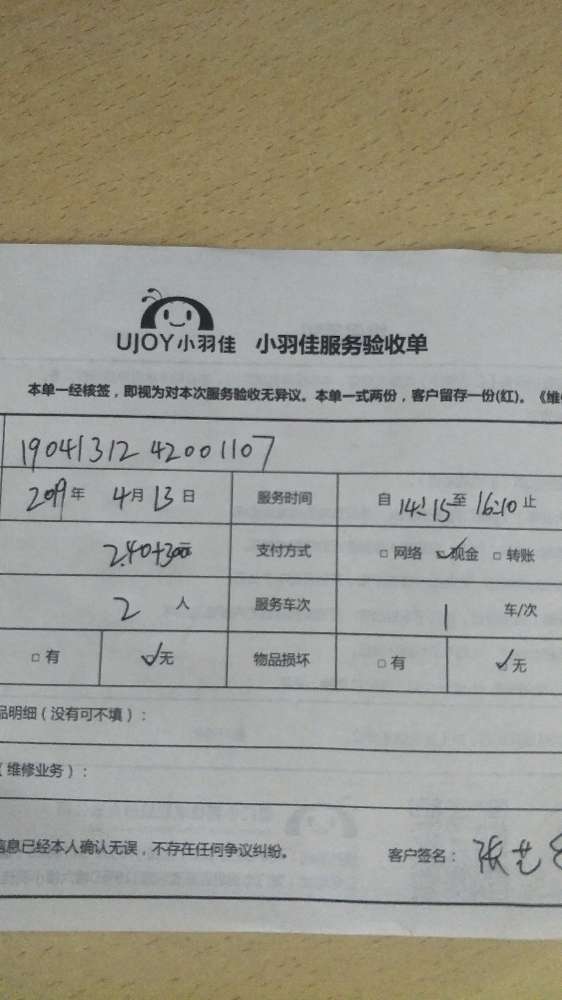 UJOY小羽佳 小羽佳服务验收单
本单一经核签，即视为对本次服务验收无异议。本单一式两份，客户留存一份(红)。《维
1904131242001107
2019年 4月13日 服务时间 自 14:15 至 16:10 止
240+300元 支付方式 □ 网络 ☑ 现金 □ 转账
2 人 服务车次 1 车/次
□ 有 ☑ 无 物品损坏 □ 有 ☑ 无
品明细（没有可不填）：
（维修业务）：
信息已经本人确认无误，不存在任何争议纠纷。 客户签名： 张艺